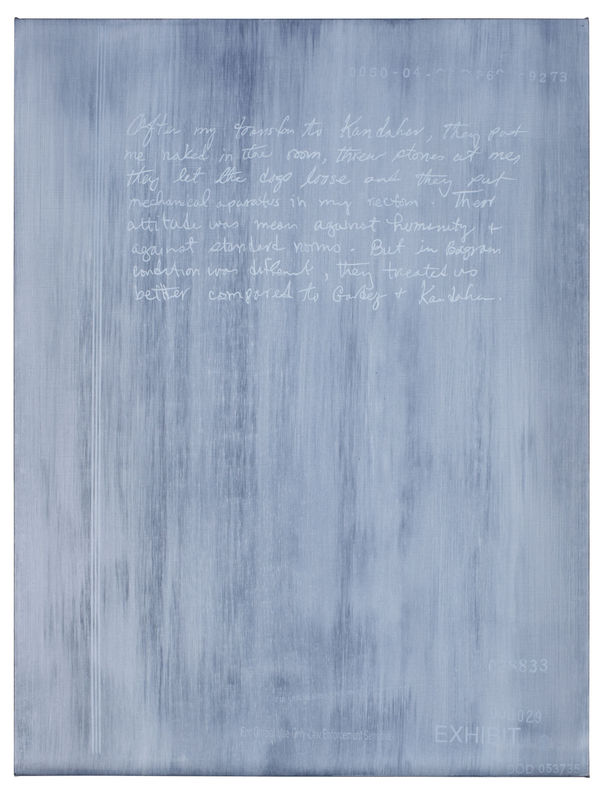 After my transfer to Kandaher, they put
me naked in the room, threw stones at me,
they let the dogs loose and they put
mechanical aparatus in my rectom. Their
attitude was mean against humanity +
against standard norms. But in Bagram
condition was different, they treated us
better compared to Gardez + Kandaher.
8833
EXHIBIT
DOD 053735